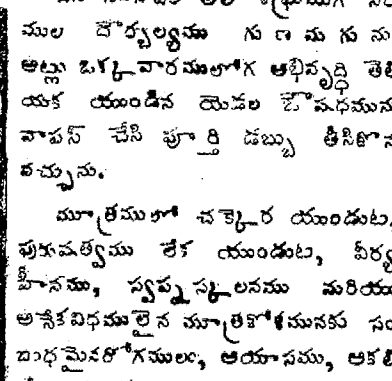 ముల దౌర్బల్యము గుణమగును
అట్లు ఒక్కవారములోగ అభివృద్ధి తెలి
యక యుండిన యెడల ఔషధమును
వాపస్ చేసి పూర్తి డబ్బు తీసికొన
వచ్చును.
మూత్రములో చక్కెర యుండుట,
పురుషత్వము లేక యుండుట, వీర్య
హీనము, స్వప్నస్కలనము మరియు
అనేకవిధములైన మూత్రకోశమునకు సం
బంధమైనరోగములు, ఆయాసము, ఆకలి